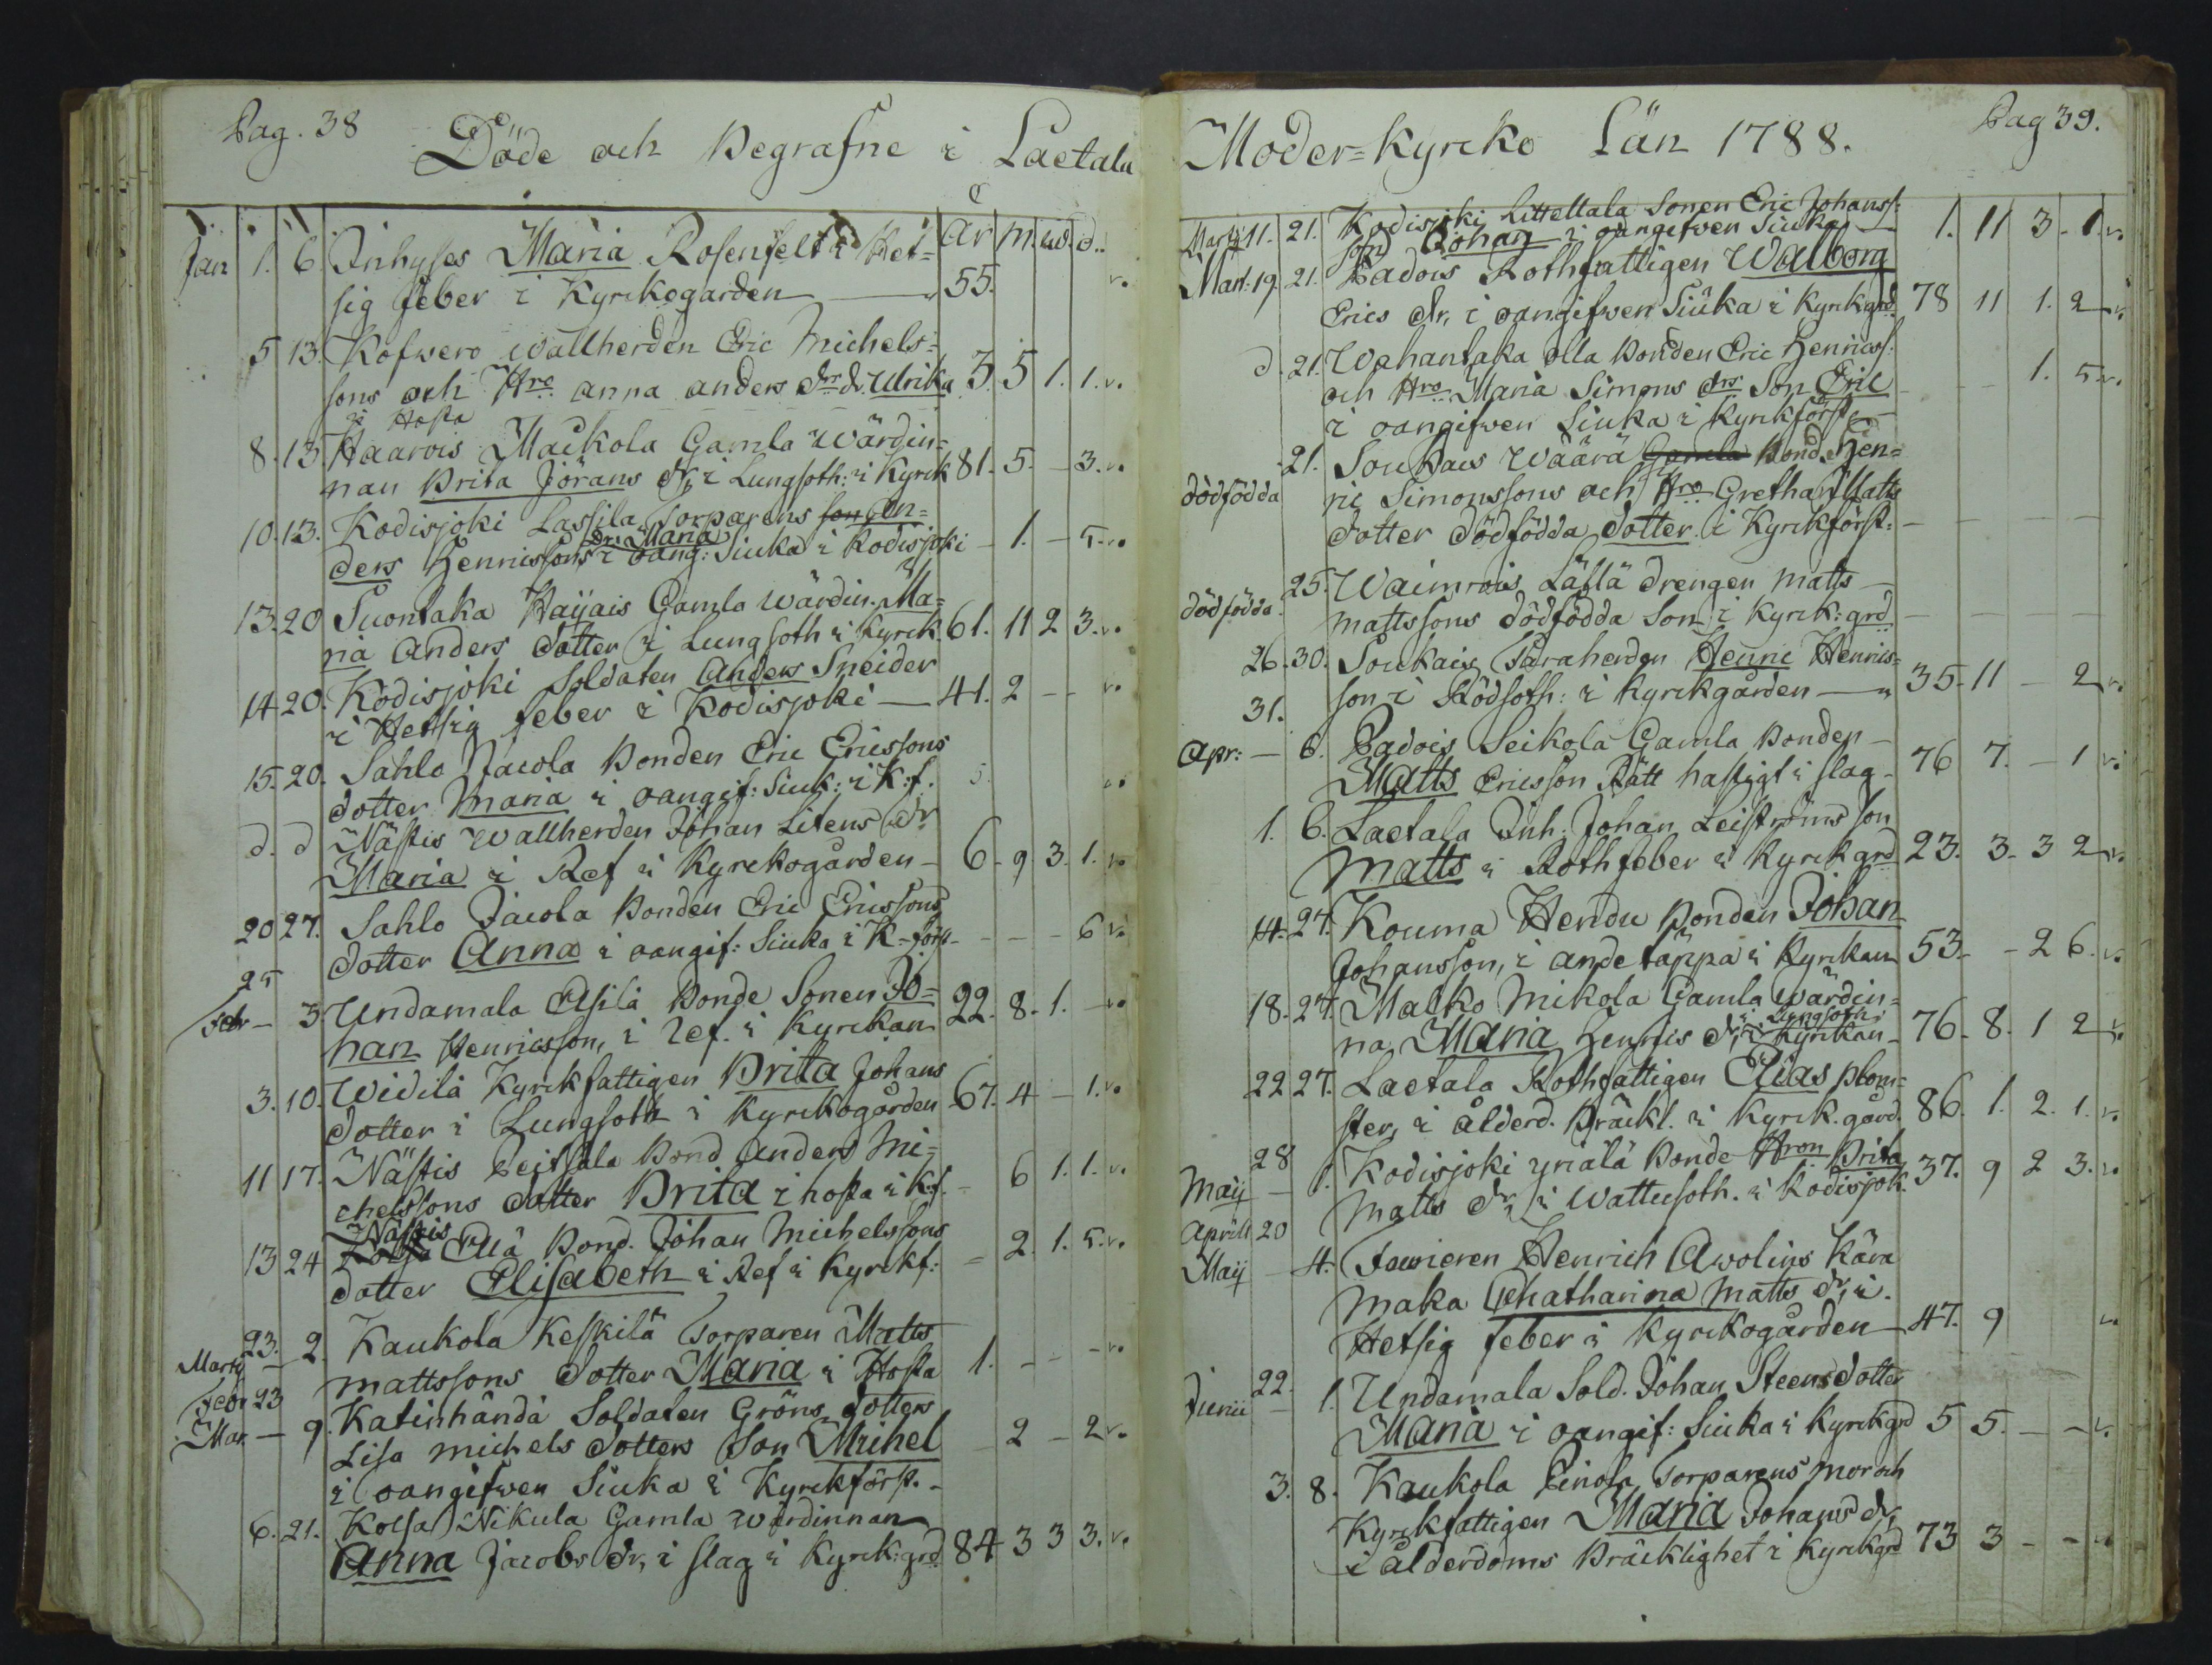 Pag. 38
Döde och Begrafne i Laetala
År m. w. d.
Jan 1. 6. Inhyses Maria Rosenfelt i Het=
sig feber i Kyrckogarden 55. v.
5 13. Kofwero wallherden Eric Michels=
sons och Hro anna anders dr dr. Ulrika 3. 5 1. 1. v.
i Hosta
8. 13. Haarois Maikola Gamla wärdin=
nan Brita Jörans dr, i Lungsoth: i Kyrck 81. 5. - 3. v.
10. 13. Kodisjoki Lassila Torparens son An=
dr: Maria
ders Henricsons i oang: Siuka i Kodisjoki - 1. - 5. v.
13. 20 Suontaka Haijais Gamla wärdin. Ma=
ria Anders dotter i Lungsoth i Kyrck 61. 11 2 3. v.
14 20. Kodisjoki Soldaten Anders Sneider
i Hetsig feber i Kodisjoki 41. 2 - - v.
15. 20. Sahlo Jacola Bonden Eric Ericssons
dotter Maria i oangif: Siuk: i K:f. 5. v.
d. d Nästis wallherden Johan Litens dr
Maria i Ref i Kyrckogården - 6 - 9 3. 1. v.
20 27. Sahlo Jacola Bonden Eric Ericssons
dotter Anna i oangif: Siuka i K-förs - - - 6 v.
25
Febr - 3 Undamala Esilä Bonde Sonen Jo=
han Henricsson, i ref. i Kyrckan 22. 8. 1. - v.
3. 10. Widilä Kyrckfattigen Brita Johans
dotter i Lungsoth i Kyrckogården 67. 4 - 1. v.
11 17. Nästis Peitsala Bond Anders Mi=
chelssons dotter Brita i hosta i K:f. - 6 1. 1. v.
Nästis
13 24 Ellä Bond. Johan Michelssons
dotter Elisabeth i Ref i Kyrckf: - 2. 1. 5. v.
23.
Martij - 2. Kaukola Keskilä Torparen Matts
mattssons dotter Maria i Hosta 1. - - - v.
Febr 23
Mar - 9. Katinhändä Soldaten Gröns dotters
Lisa michels dotters son Michel - 2 - 2 v.
i oangifwen Siuka i Kyrckförst. -
6. 21. Kolsa Nikula Gamla wärdinnan
Anna Jacobs dr, i slag i Kyrck:grd. 84 3 3 3. v.
Moder=Kyrcko Län 1788.
Pag 39.
Martij 11. 21. Kodisjoki Littellala Sonen Eric Johanss:
son Johan i oangifwen Siuka 1. 11 3 - 1. v.
Mart. 19. 21. Padois Rothfattigen Walborg
Erics dr, i oangifwen Siuka i Kyrkgrd. 78 11 1. 2 v.
d. 21. Wahantaka Olla Bonden Eric Henricss:
och Hro Maria Simons drs Son Eric - - 1. 5. v.
i oangifwen Siuka i Kyrkförst.
21. Soukais Wäärä Gamla Bond. Hen=
dödfödda ric Simonssons och Hro Gretha Matts
dotter dödfödda dotter i Kyrckförst: - - - -
25. Waimrois Lällä drengen matts
dödfödda. mattssons dödfödda Son i Kyrck:grd - - - -
26. 30. Soukais Faraherden Henric Henrics=
son i Rödsoth: i Kyrckgården 35. 11 - 2 v.
31.
Apr: - 6. Padois Seikola Gamla Bonden
Matts Ericsson Rätt hastigt i slag 76 7. - 1 v.
1. 6. Laetala Inh: Johan Leiströms son
Matts i Rothfeber i Kyrckgrd 23. 3 - 3 2 v.
14. 27. Kouma Hendu Bonden Johan
Johansson, i andetäppa i Kyrckan 53. - 2 6. v.
18. 27. Malko Mikola Gamla wärdin=
i Lungsoth:
na Maria Henrics dr, i Kyrckan 76. 8. 1 2 v.
22 27. Laetala Rothfattigen Elias Blom=
ster, i ålderd. Bräckl. i Kyrck.gård. 86. 1. 2. 1. v.
28
Maij - 1. Kodisjoki yriälä Bonde Hron Brita
Matts dr, i Wattusoth. i Kodisjok. 37. 9 2 3. v.
Aprill 20
Maij - 4. Fourieren Henrich Awolins Kära
Maka Chatharina Matts dr, i.
Hetsig feber i Kyrckogården 47. 9 v.
22.
Junii - 1. Undamala Sold. Johan Steens dotter
Maria i oangif: Siuka i Kyrckgrd 5 5. - - v.
3. 8. Kaukola Pinola Torparens mor och
Kyrckfattigen Maria Johans dr,
i ålderdoms Bräcklighet i Kyrckgrd 73 3 - - v.